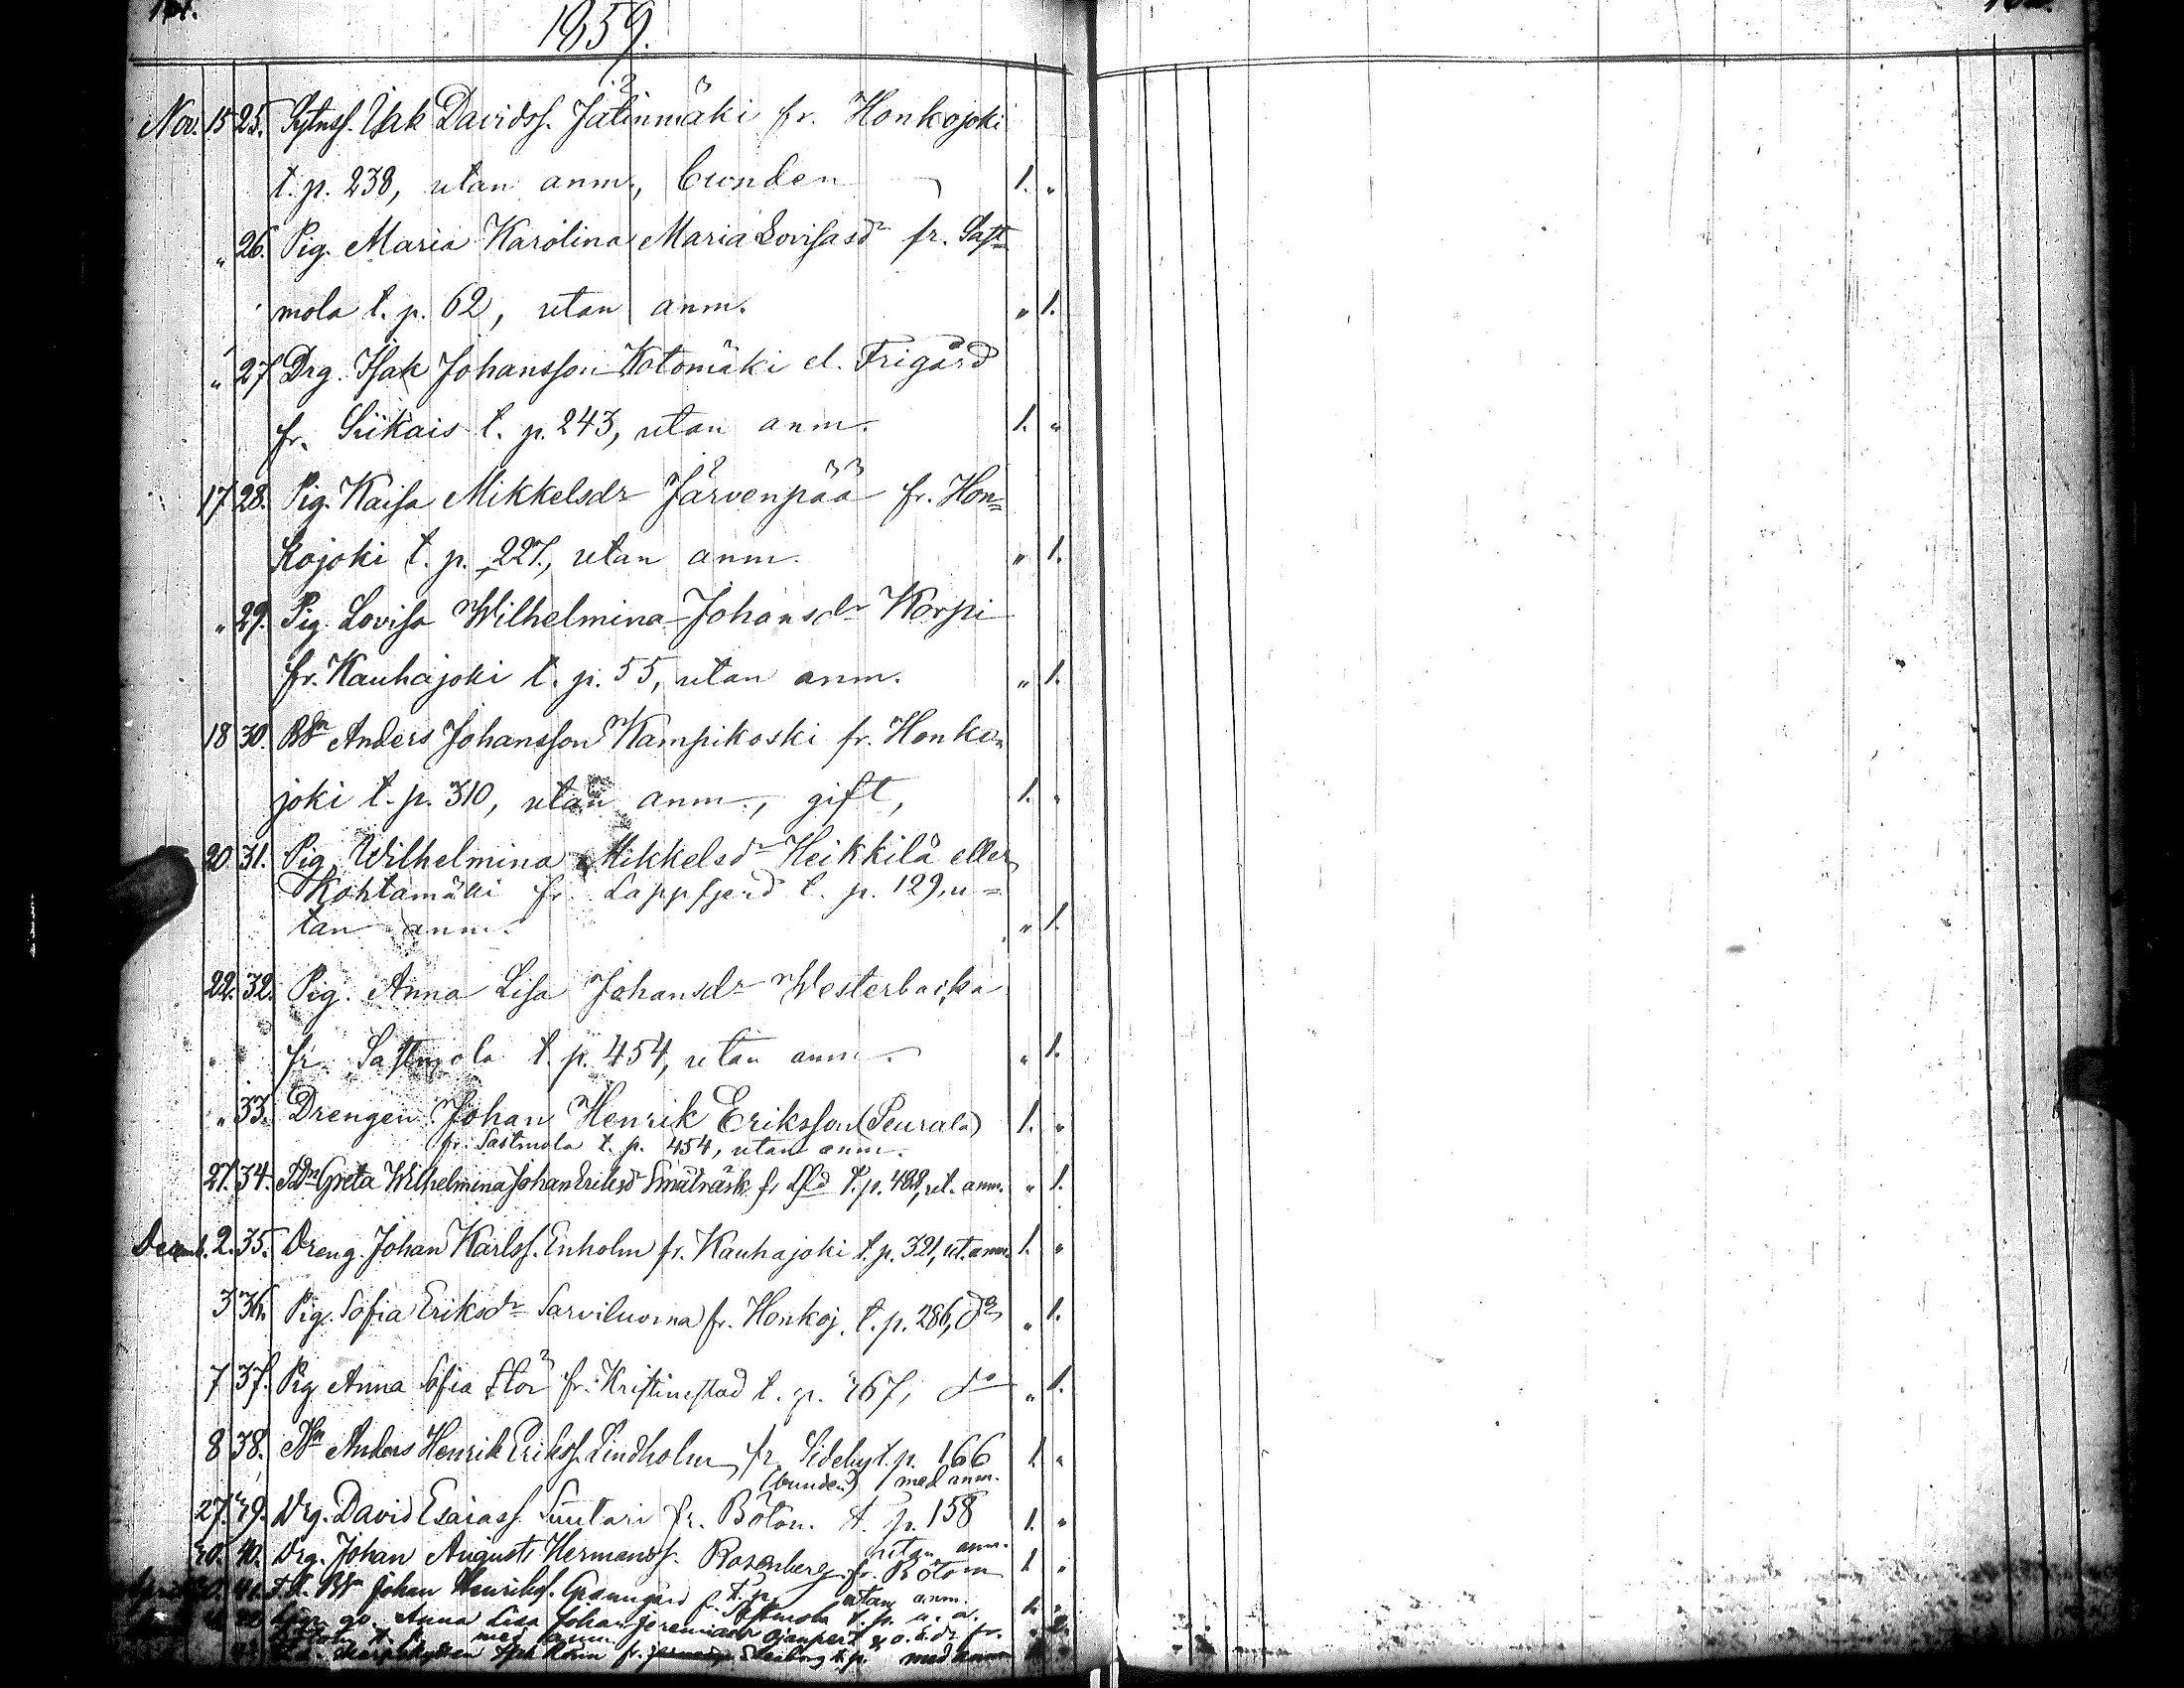 1859.
Nov. 15 25. Isak Davidss. Jätinmäki fr. Honkojoki
t. p. 238, utan anm., bunden 1. "
" 26. Pig. Maria Karolina Maria Lovisasdr fr. Sast-
mola t. p. 62, utan anm. " 1.
" 27 Drg. Isak Johansson Kotomäki el. Frigård
fr. Siikais t. p. 243, utan anm. 1. "
17 28. Pig. Kaisa Mikkelsdr Järvenpää fr. Hon=
kojoki t. p. 227, utan anm. " 1.
" 29. Pig. Lovisa Wilhelmina Johansdr Korpi
fr. Kauhajoki t. p. 55, utan anm. " 1.
18 30. Bdn Anders Johansson Kampikoski fr. Honko=
joki t. p. 310, utan anm., gift, 1. "
20. 31. Pig. Wilhelmina Mikkelsdr Heikkilä eller
Kohtamäki fr. Lappfjerd t. p. 129, u=
tan anm. " 1.
22. 32. Pig. Anna Lisa Johansdr Westerbacka
fr. Sastmola t. p. 454, utan anm. " 1.
" 33. Drengen Johan Henrik Eriksson (Peurala) 1. "
fr. Sastmola t. p. 454, utan anm.
27. 34. Greta Wilhelmina Johan Eriksdr Småträsk fr. Lfd t. p. 488, ut. anm. " 1.
Decemb. 2. 35. Dreng. Johan Karlss. Enholm fr. Kauhajoki t. p. 321, ut. anm. 1. "
3 36. Pig. Sofia Eriksdr Sarviluoma fr. Honkoj. t. p. 286, do " 1.
7 37. Pig. Anna Sofia Stor fr. Kristinestad t. p. 167, do " 1.
8 38. Anders Henrik Erikss. Lindholm fr. Sideby t. p. 166 1. "
(bunden) med anm.
27. 39. Drg. David Esaiass. Suutari fr. Bötom t. p. 158 1. "
utan anm.
30. 40. Drg. Johan August Hermanss. Rosenberg fr. Bötom 1 "
41. Johan Henrikss. t. p. utan anm.
Anna Lisa Johan Jeremiasdr fr.
t. p. med anm.
fr. t. p. med anm